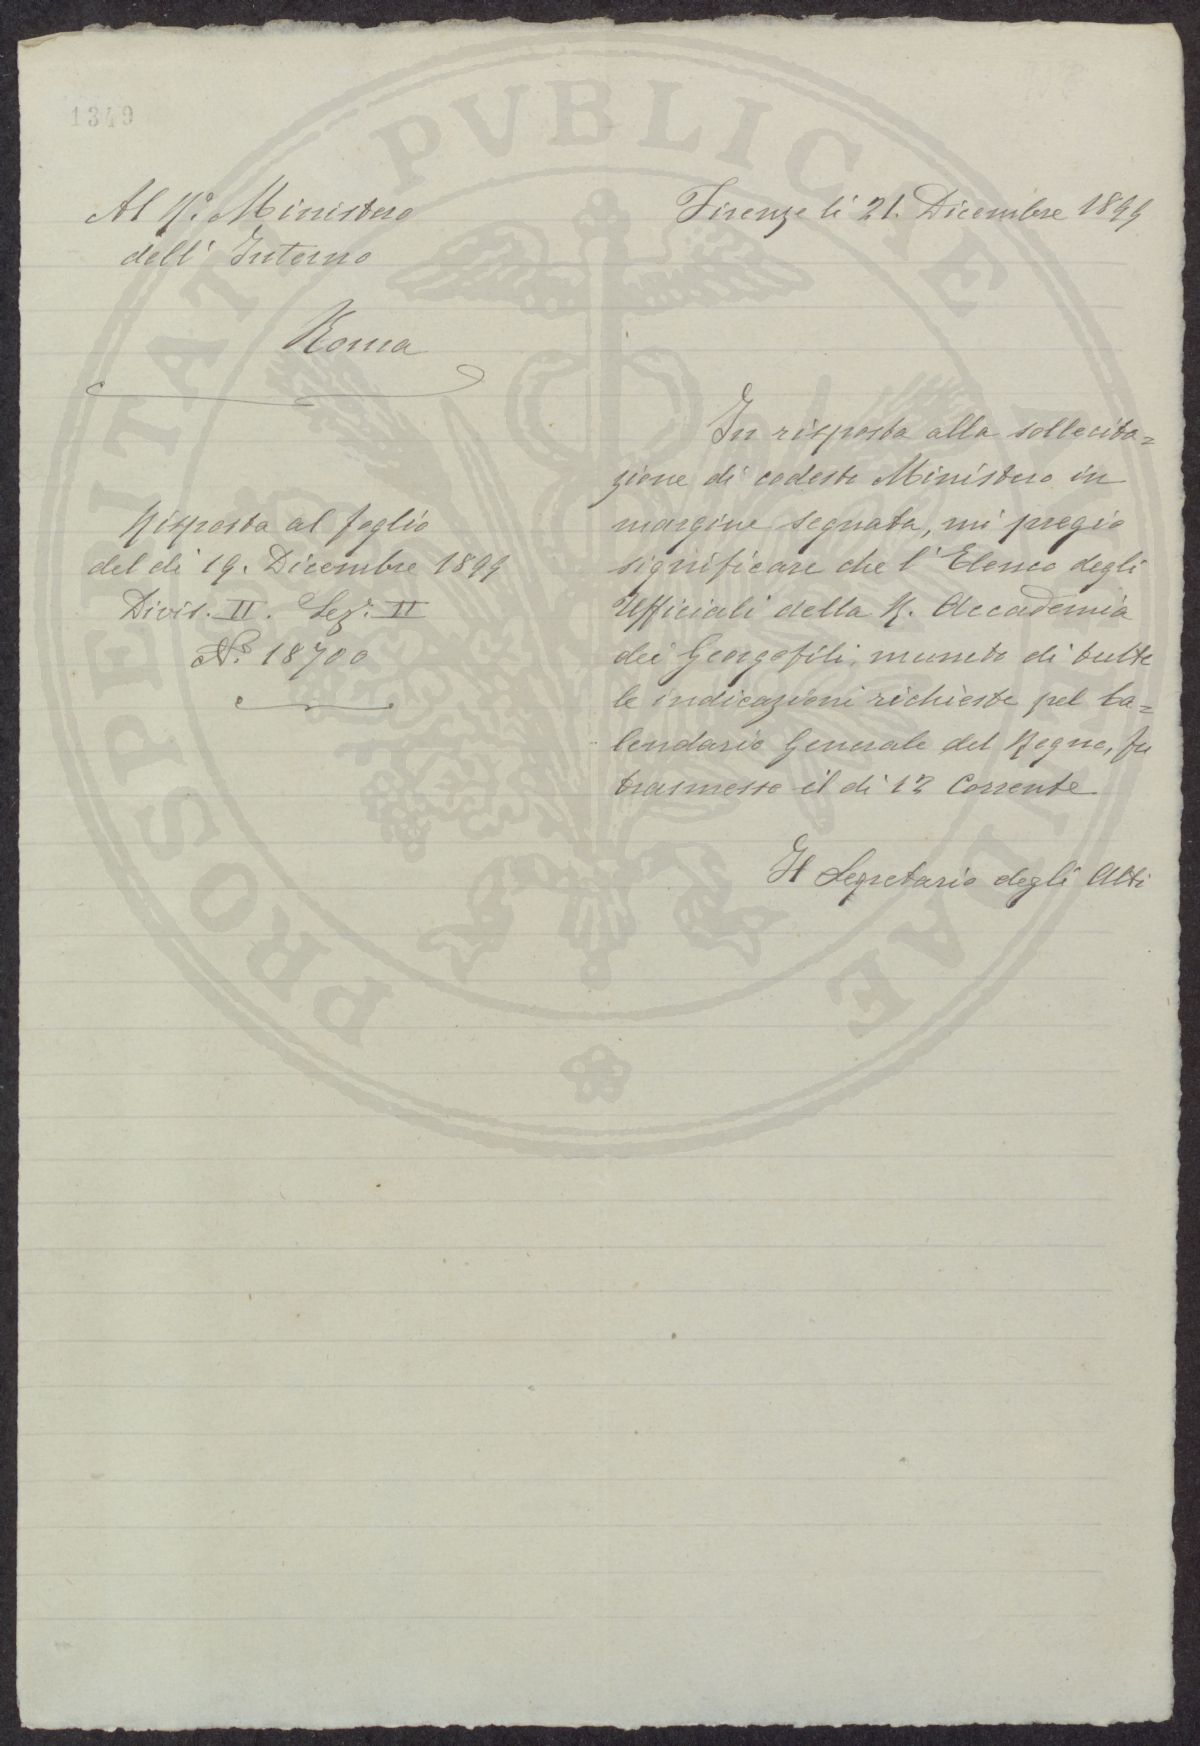 1349
Al R.º Ministero
dell' Interno
Roma
Firenze li 21. Dicembre 1899
Risposta al foglio
del dì 19. Dicembre 1899
Divis. II. Sez: II
N.º 18700
In risposta alla sollecita=
zione di codesto Ministero in
margine segnata, mi pregio
significare che l'Elenco degli
Ufficiali della R. Accademia
dei Georgofili, munito di tutte
le indicazioni richieste pel Ca=
lendario Generale del Regno, fu
trasmesso il dì 12 Corrente
Il Segretario degli Atti
PROSPERITATI PVBLICAE AVGENDAE